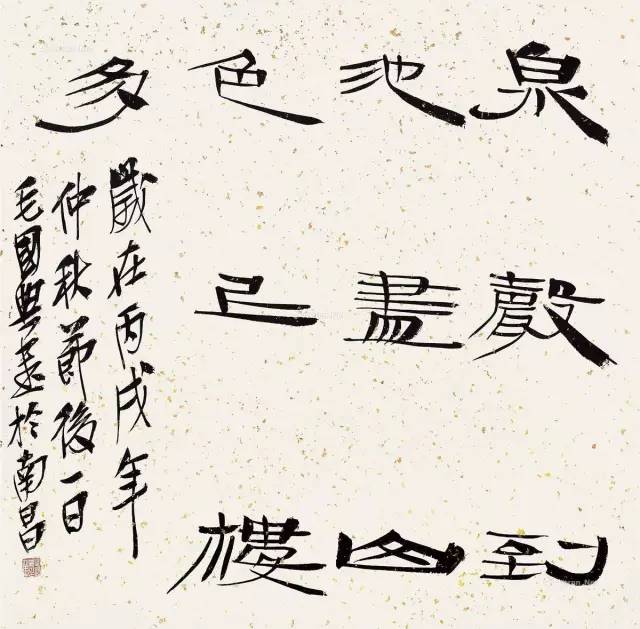 泉聲到
池盡山
色上樓
多
歲在丙戌年
仲秋節後一日
毛國典書於南昌